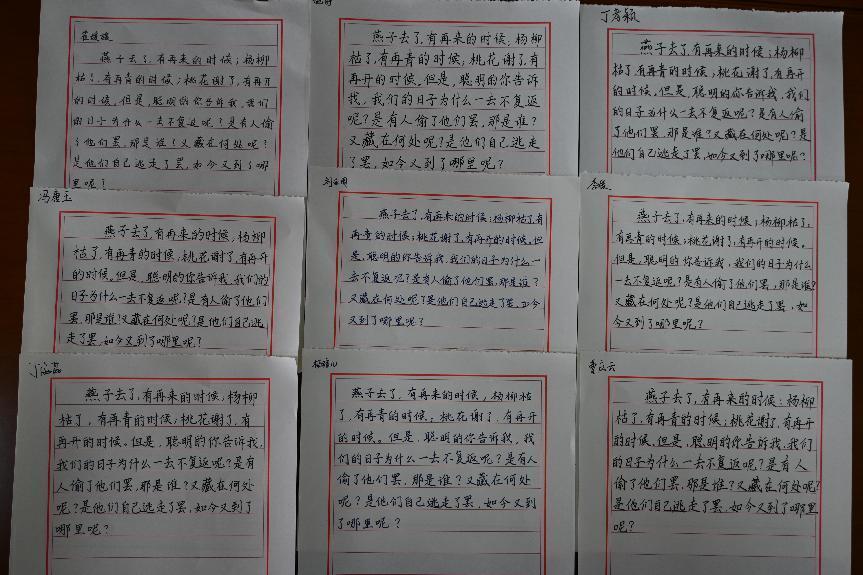 燕子去了,有再来的时候;杨柳
枯了,有再青的时候;桃花谢了,有再开
的时候。但是,聪明的你告诉我,我们
的日子为什么一去不复返呢?是有人偷
了他们罢,那是谁?又藏在何处呢?
是他们自己逃走了罢,如今又到了哪
里呢?
燕子去了,有再来的时候,杨柳
枯了,有再青的时候;桃花谢了,有
再开的时候。但是,聪明的你告诉
我,我们的日子为什么一去不复返
呢?是有人偷了他们罢,那是谁?
又藏在何处呢?是他们自己逃走
了罢,如今又到了哪里呢?
燕子去了,有再来的时候;杨柳
枯了,有再青的时候;桃花谢了,有再开
的时候。但是,聪明的你告诉我,我们
的日子为什么一去不复返呢?是有人偷
了他们罢,那是谁?又藏在何处呢?是
他们自己逃走了罢,如今又到了哪里呢?
冯康王
燕子去了,有再来的时候,杨柳
枯了,有再青的时候;桃花谢了,有再开
的时候。但是,聪明的你告诉我,我们的
日子为什么一去不复返呢?是有人偷了他们
罢,那是谁?又藏在何处呢?是他们自己逃
走了罢,如今又到了哪里呢?
燕子去了,有再来的时候;杨柳枯了,有
再青的时候;桃花谢了,有再开的时候。但
是,聪明的你告诉我,我们的日子为什么一去
不复返呢?是有人偷了他们罢,那是谁?
又藏在何处呢?是他们自己逃走了罢,如今
又到了哪里呢?
燕子去了,有再来的时候;杨柳枯了,
有再青的时候;桃花谢了,有再开的时候。
但是,聪明的你告诉我,我们的日子为什么
一去不复返呢?是有人偷了他们罢,那是谁?
又藏在何处呢?是他们自己逃走了罢,如
今又到了哪里呢?
燕子去了,有再来的时候,杨柳
枯了,有再青的时候;桃花谢了,有
再开的时候。但是,聪明的你告诉我,
我们的日子为什么一去不复返呢?是有
人偷了他们罢,那是谁?又藏在何处
呢?是他们自己逃走了罢,如今又到了
哪里呢?
燕子去了,有再来的时候,杨柳枯
了,有再青的时候;桃花谢了,有再开
的时候。但是,聪明的你告诉我,我
们的日子为什么一去不复返呢?是有人
偷了他们罢,那是谁?又藏在何处
呢?是他们自己逃走了罢,如今又到
了哪里呢?
曹文云
燕子去了,有再来的时候;杨柳
枯了,有再青的时候;桃花谢了,有再开
的时候。但是,聪明的你告诉我,我们
的日子为什么一去不复返呢?是有人
偷了他们罢,那是谁?又藏在何处呢?
是他们自己逃走了罢,如今又到了哪里
呢?